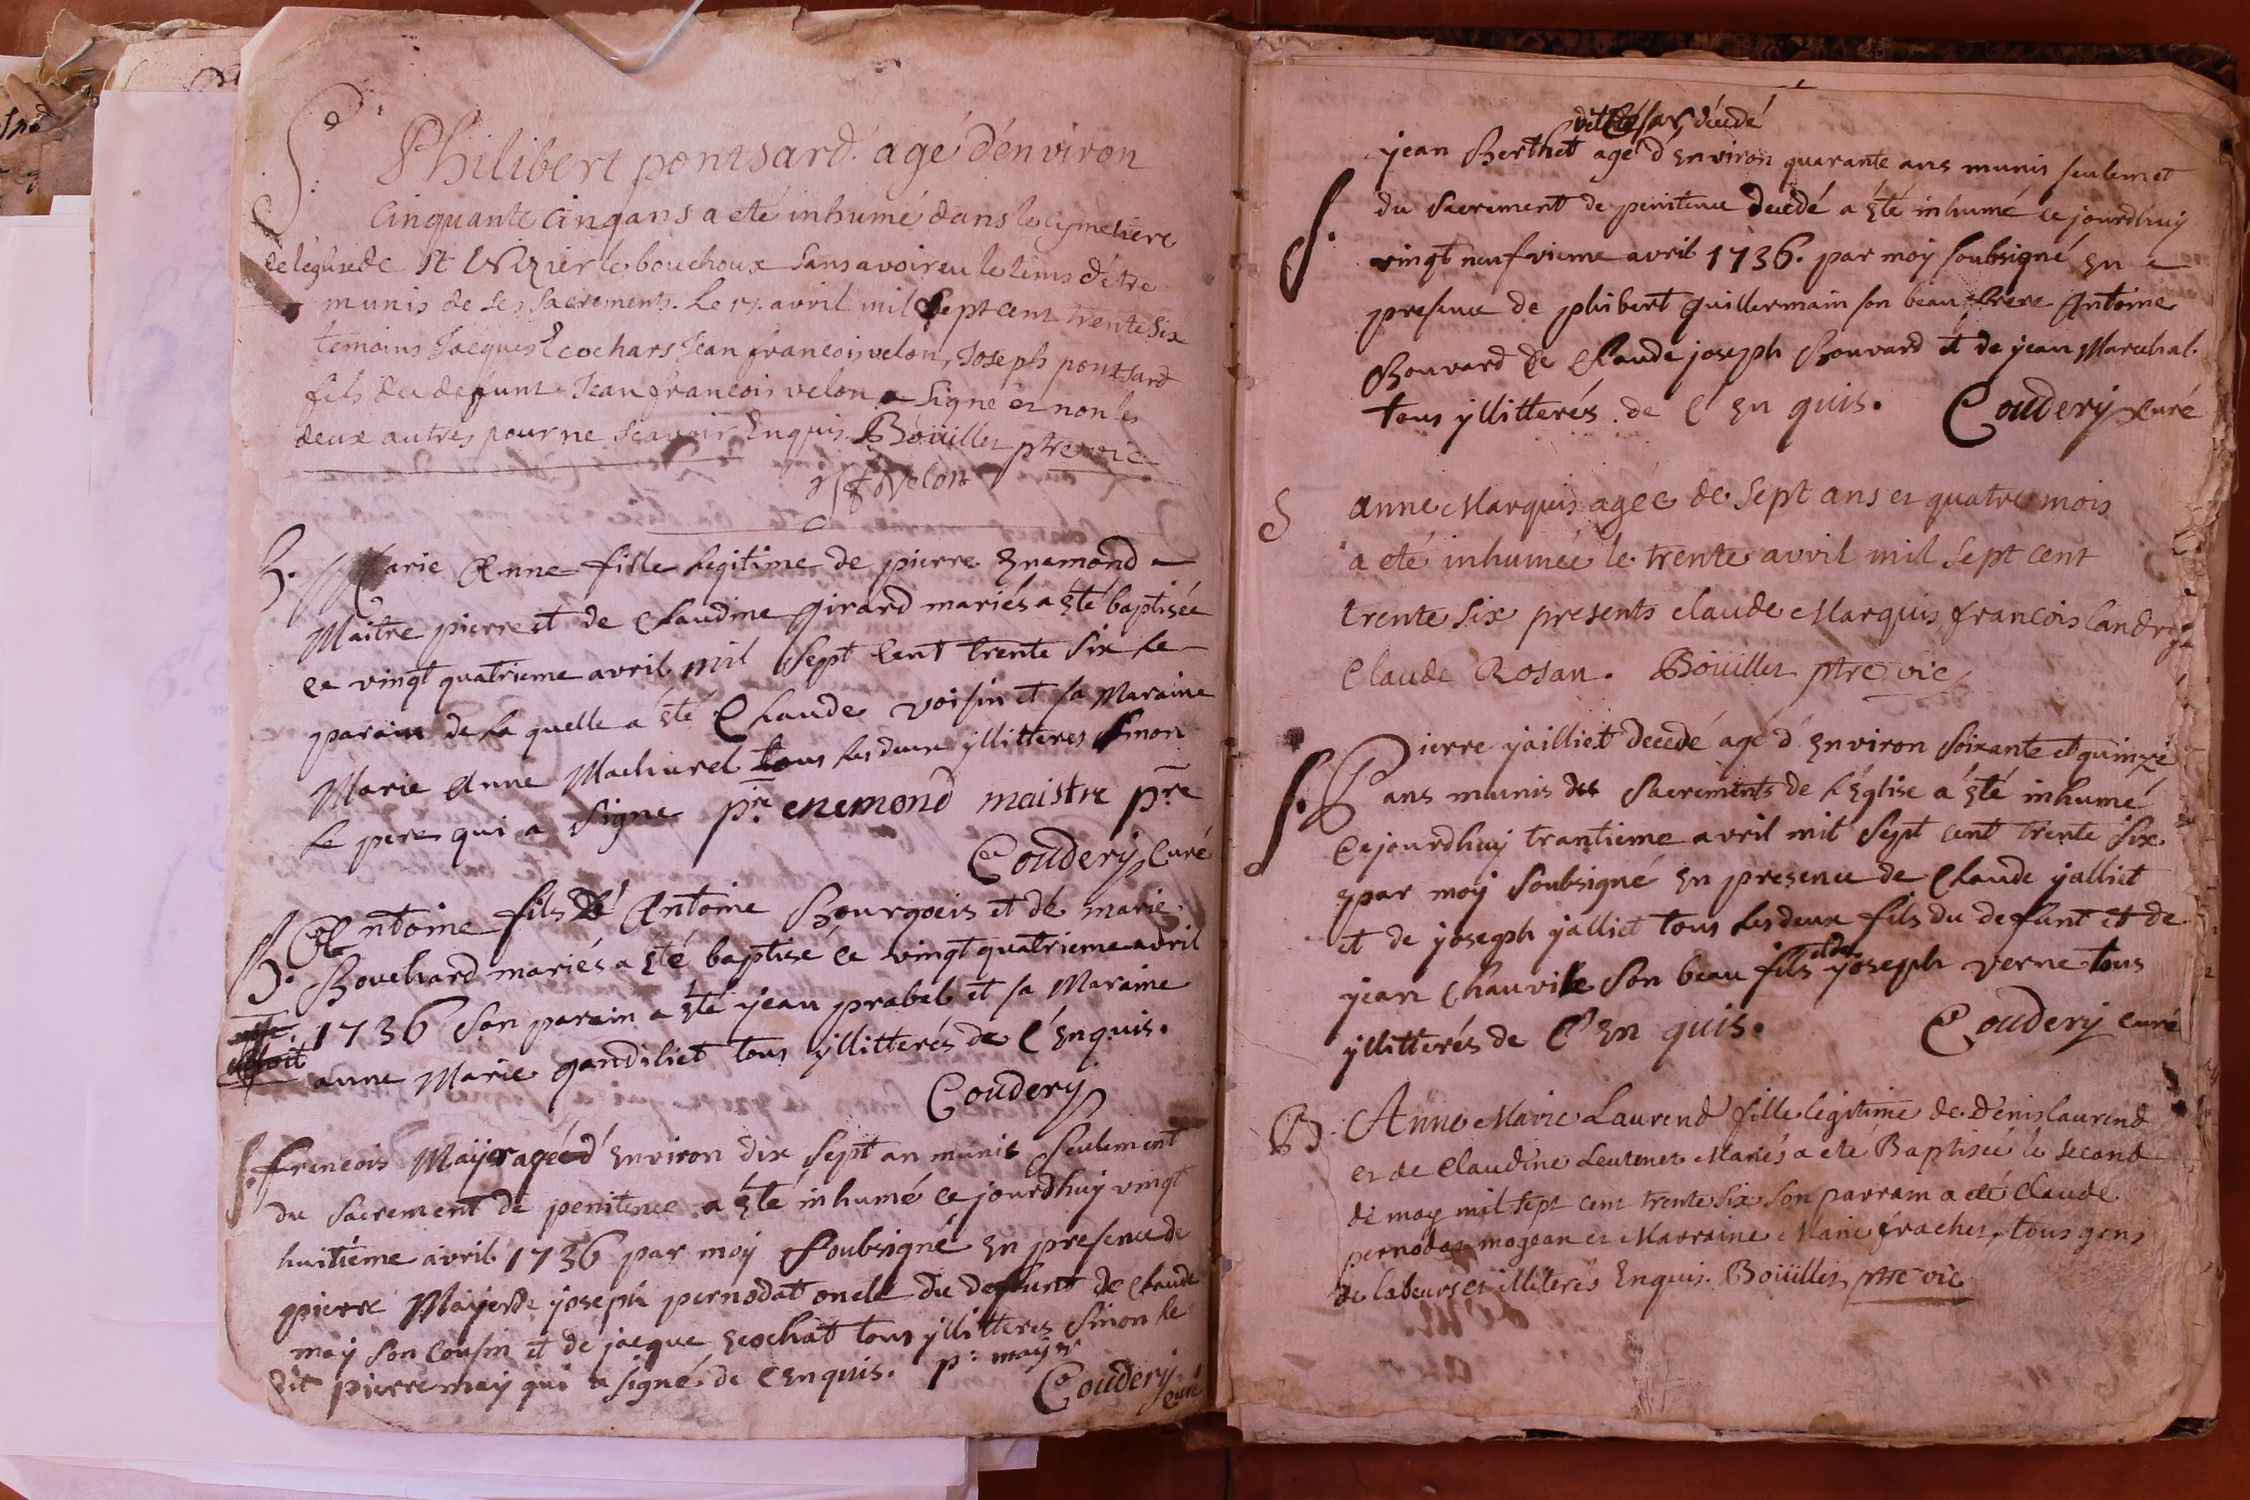 S.
Philibert pontsard agé d'environ
Cinquante cinq ans a eté inhumé dans le cymetiere
de l'eglise de St Virier le bouchoux sans avoir eu le tems d'être
munis de ses sacrements. Le 17. avril mil sept cent trente six
temoins Jacques Ecochars Jean francois velon, Joseph pontsard
fils du defunt Jean francois velon a signé et non les
deux autres pour ne sçavoir Enquis. Boüillet ptre vic
velon
B. Marie Anne fille legitime de pierre Enemond
Maitre pierre et de Claudine Girard mariés a été baptisée
ce vingt quatrieme avril mil sept cent trente six le
parain de la quelle a été Claude voisin et sa Maraine
Marie Anne Machurel tous les deux yllitteres sinon
le pere qui a signe pre enemond maistre pre
Coudery Curé
B. Antoine fils de Antoine Bourgoeis et de marie
Bouchard mariés a été baptisé ce vingt quatrieme avril
1736 son parain a été yean prabel et sa Maraine
anne Marie gandiliet tous yllitterés de C'Enquis.
Coudery
S. francois Mayer agé d'Environ dix sept an munis seulement
du sacrement de penitence a été inhumé ce jourdhuy vingt
huitiéme avril 1736 par moy soubsigné en presence de
pierre Mayer de joseph pernodat oncle du defunt de Claude
may son Cousin et de jacque ecochat tous yllitteres sinon le
dit pierre mey qui a signé de C'enquis. p: mayer
Coudery
Curé
dit Césár, décedé
yean Berthet agé d'Environ quarante ans munis seulemet
S. du sacrement de penitence decedé a été inhumé ce jourdhuy
vingt neufvieme avril 1736. par moy soubsigné en
presence de phibert guillermain son beau frere Antoine
Bouvard de Claude joseph Bouvard et de yean Marechal.
tous yllitterés de C'En quis. Coudery Curé
S anne Marquis agée de sept ans et quatre mois
a eté inhumée le trente avril mil sept cent
trente six presents claude Marquis francois Landr
Claude Rosan. Boüillet ptre vic
S. Pierre yailliet decedé agé d'Environ soixante et quinze
ans munis des sacrements de l'Eglise a été inhumé
Cejourdhuy trantieme avril mil sept cent trente six.
par moy soubsigné en presence de Claude yalliet
et de yoseph yalliet tous les deux fils du defunt et de
yean Chauvile son beau fils et de yoseph verne tous
yllitterés de C'En quis. Coudery Curé
B. Anne Marie Laurend fille legitime de Denis laurend
et de Claudine Leutenet Mariés a eté Baptisée le second
de may mil sept cent trente six son parrain a eté Claude
mogean et Marraine Marie fracher, tous gens
de labeurs et illiterés Enquis. Boüillet ptre vic